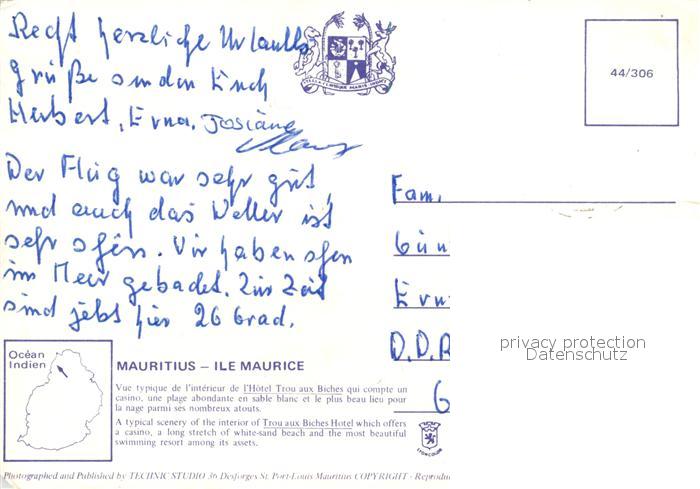 Recht herzliche Urlaubs
grüße senden Euch
Herbert, Erna, Josiane
Der Flug war sehr gut,
und auch das Wetter ist
sehr schön. Wir haben schon
im Meer gebadet. Zur Zeit
sind jetzt hier 26 Grad.
STELLA CLAVISQUE MARIS INDICI
44/306
Fam.
Gün
Ern
D.D.R
6
privacy protection
Datenschutz
Océan
Indien
MAURITIUS – ILE MAURICE
Vue typique de l'intérieur de l'Hôtel Trou aux Biches qui compte un
casino, une plage abondante en sable blanc et le plus beau lieu pour
la nage parmi ses nombreux atouts.
A typical scenery of the interior of Trou aux Biches Hotel which offers
a casino, a long stretch of white-sand beach and the most beautiful
swimming resort among its assets.
LYONCOLOR
Photographed and Published by TECHNIC STUDIO 36 Desforges St. Port-Louis Mauritius COPYRIGHT - Reprodu